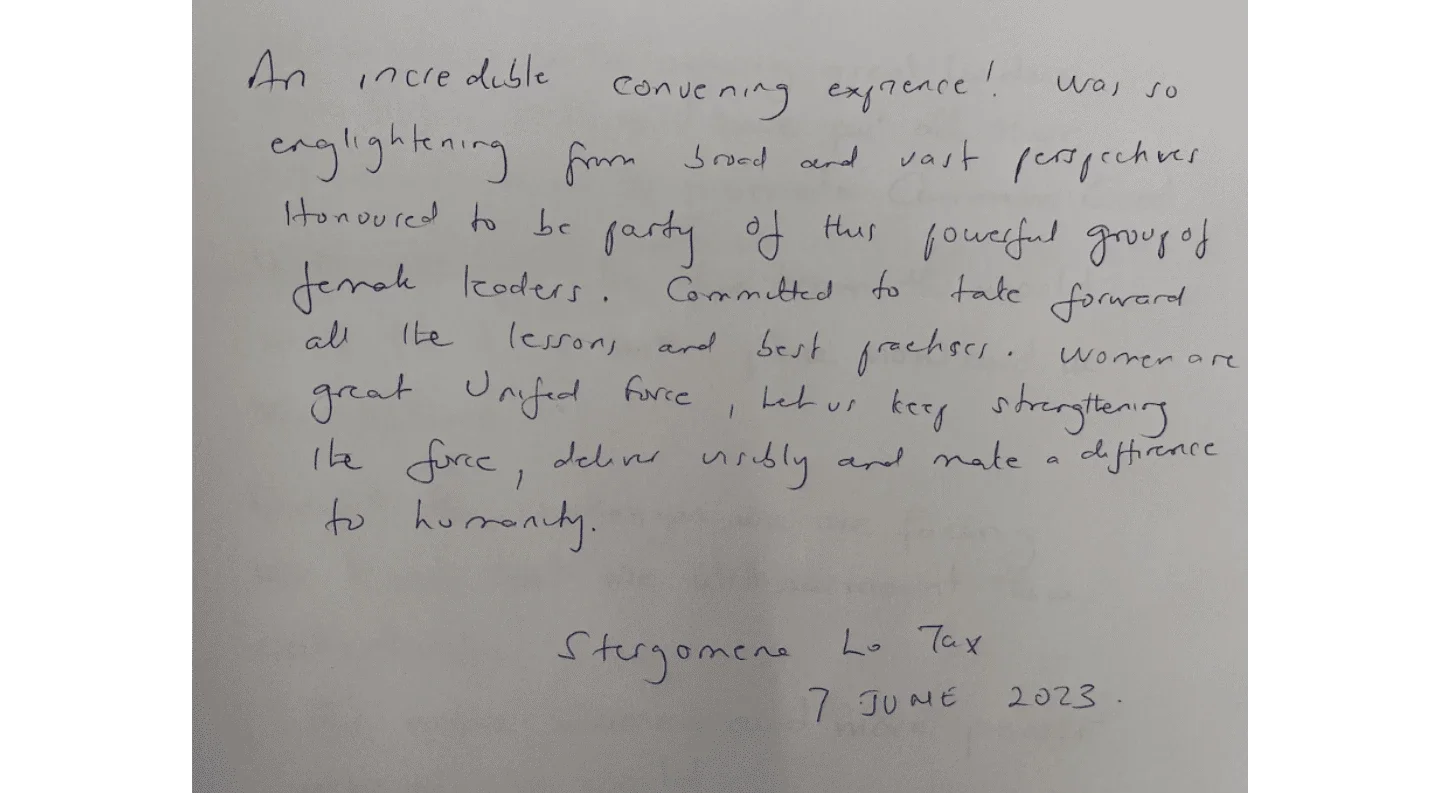 An incredible convening exprience! was so
englightening from broad and vast perspectives
Honoured to be party of this powerful group of
female leaders. Committed to take forward
all the lessons and best practises. Women are
great Unified force, Let us keep strengthening
the force, deliver visibly and make a diffirence
to humanity.
Stergomena Lo Tax
7 JUNE 2023.